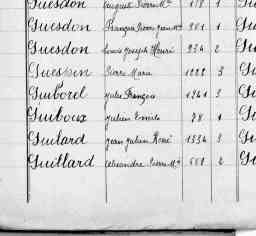 Guesdon August Pierre Mie 178 1 Gu
Guesdon François Pierre Jean Mie 901 1 Gu
Guesdon Louis Joseph Henri 234 2 Gu
Guessin Pierre Marie 1222 3 Gu
Guiborel Jules François 1241 3 Gu
Guiboux Julien Emile 78 1 Gu
Guilard Jean Julien René 1334 3 Gu
Guillard Alexandre Pierre Mie 551 2 G